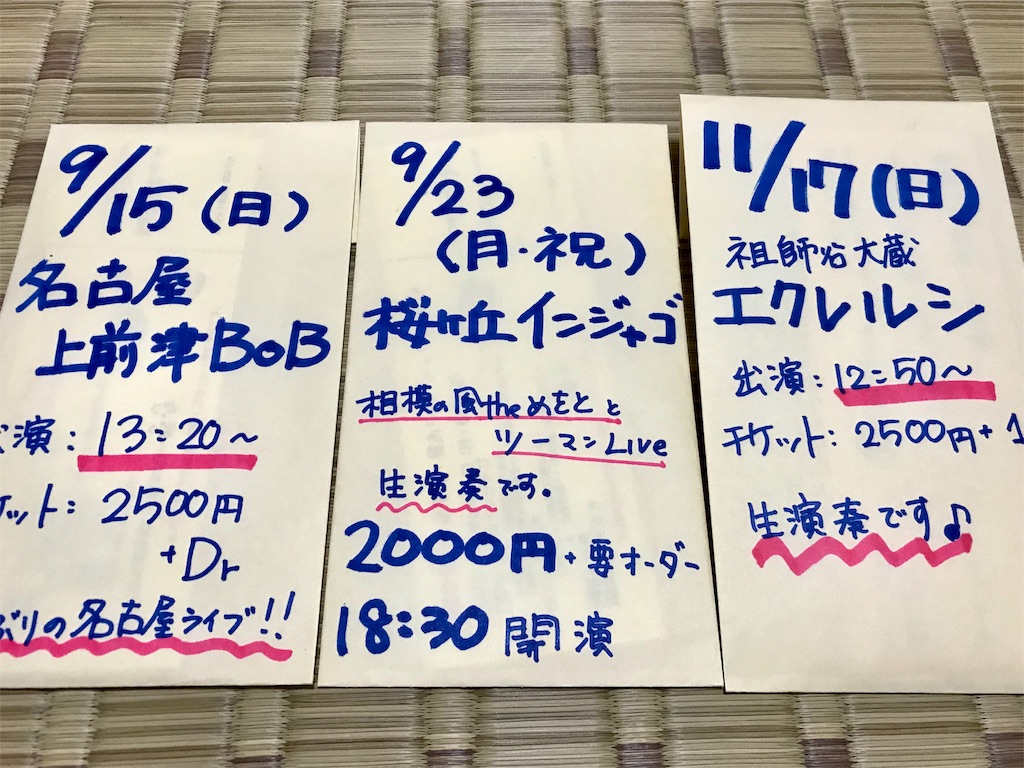 9/15(日)
名古屋
上前津BoB
演: 13:20〜
ケット: 2500円
+Dr
ぶりの名古屋ライブ!!
9/23
(月·祝)
桜ヶ丘インジャゴ
相模の風theめをとと
ツーマンLive
生演奏です。
2000円+要オーダー
18:30開演
11/17(日)
祖師谷大蔵
エクレルシ
出演: 12:50〜
チケット: 2500円+1
生演奏です♪